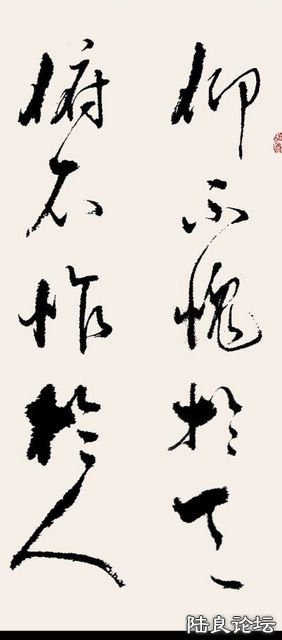 仰不愧於天
俯不怍於人
陆良论坛